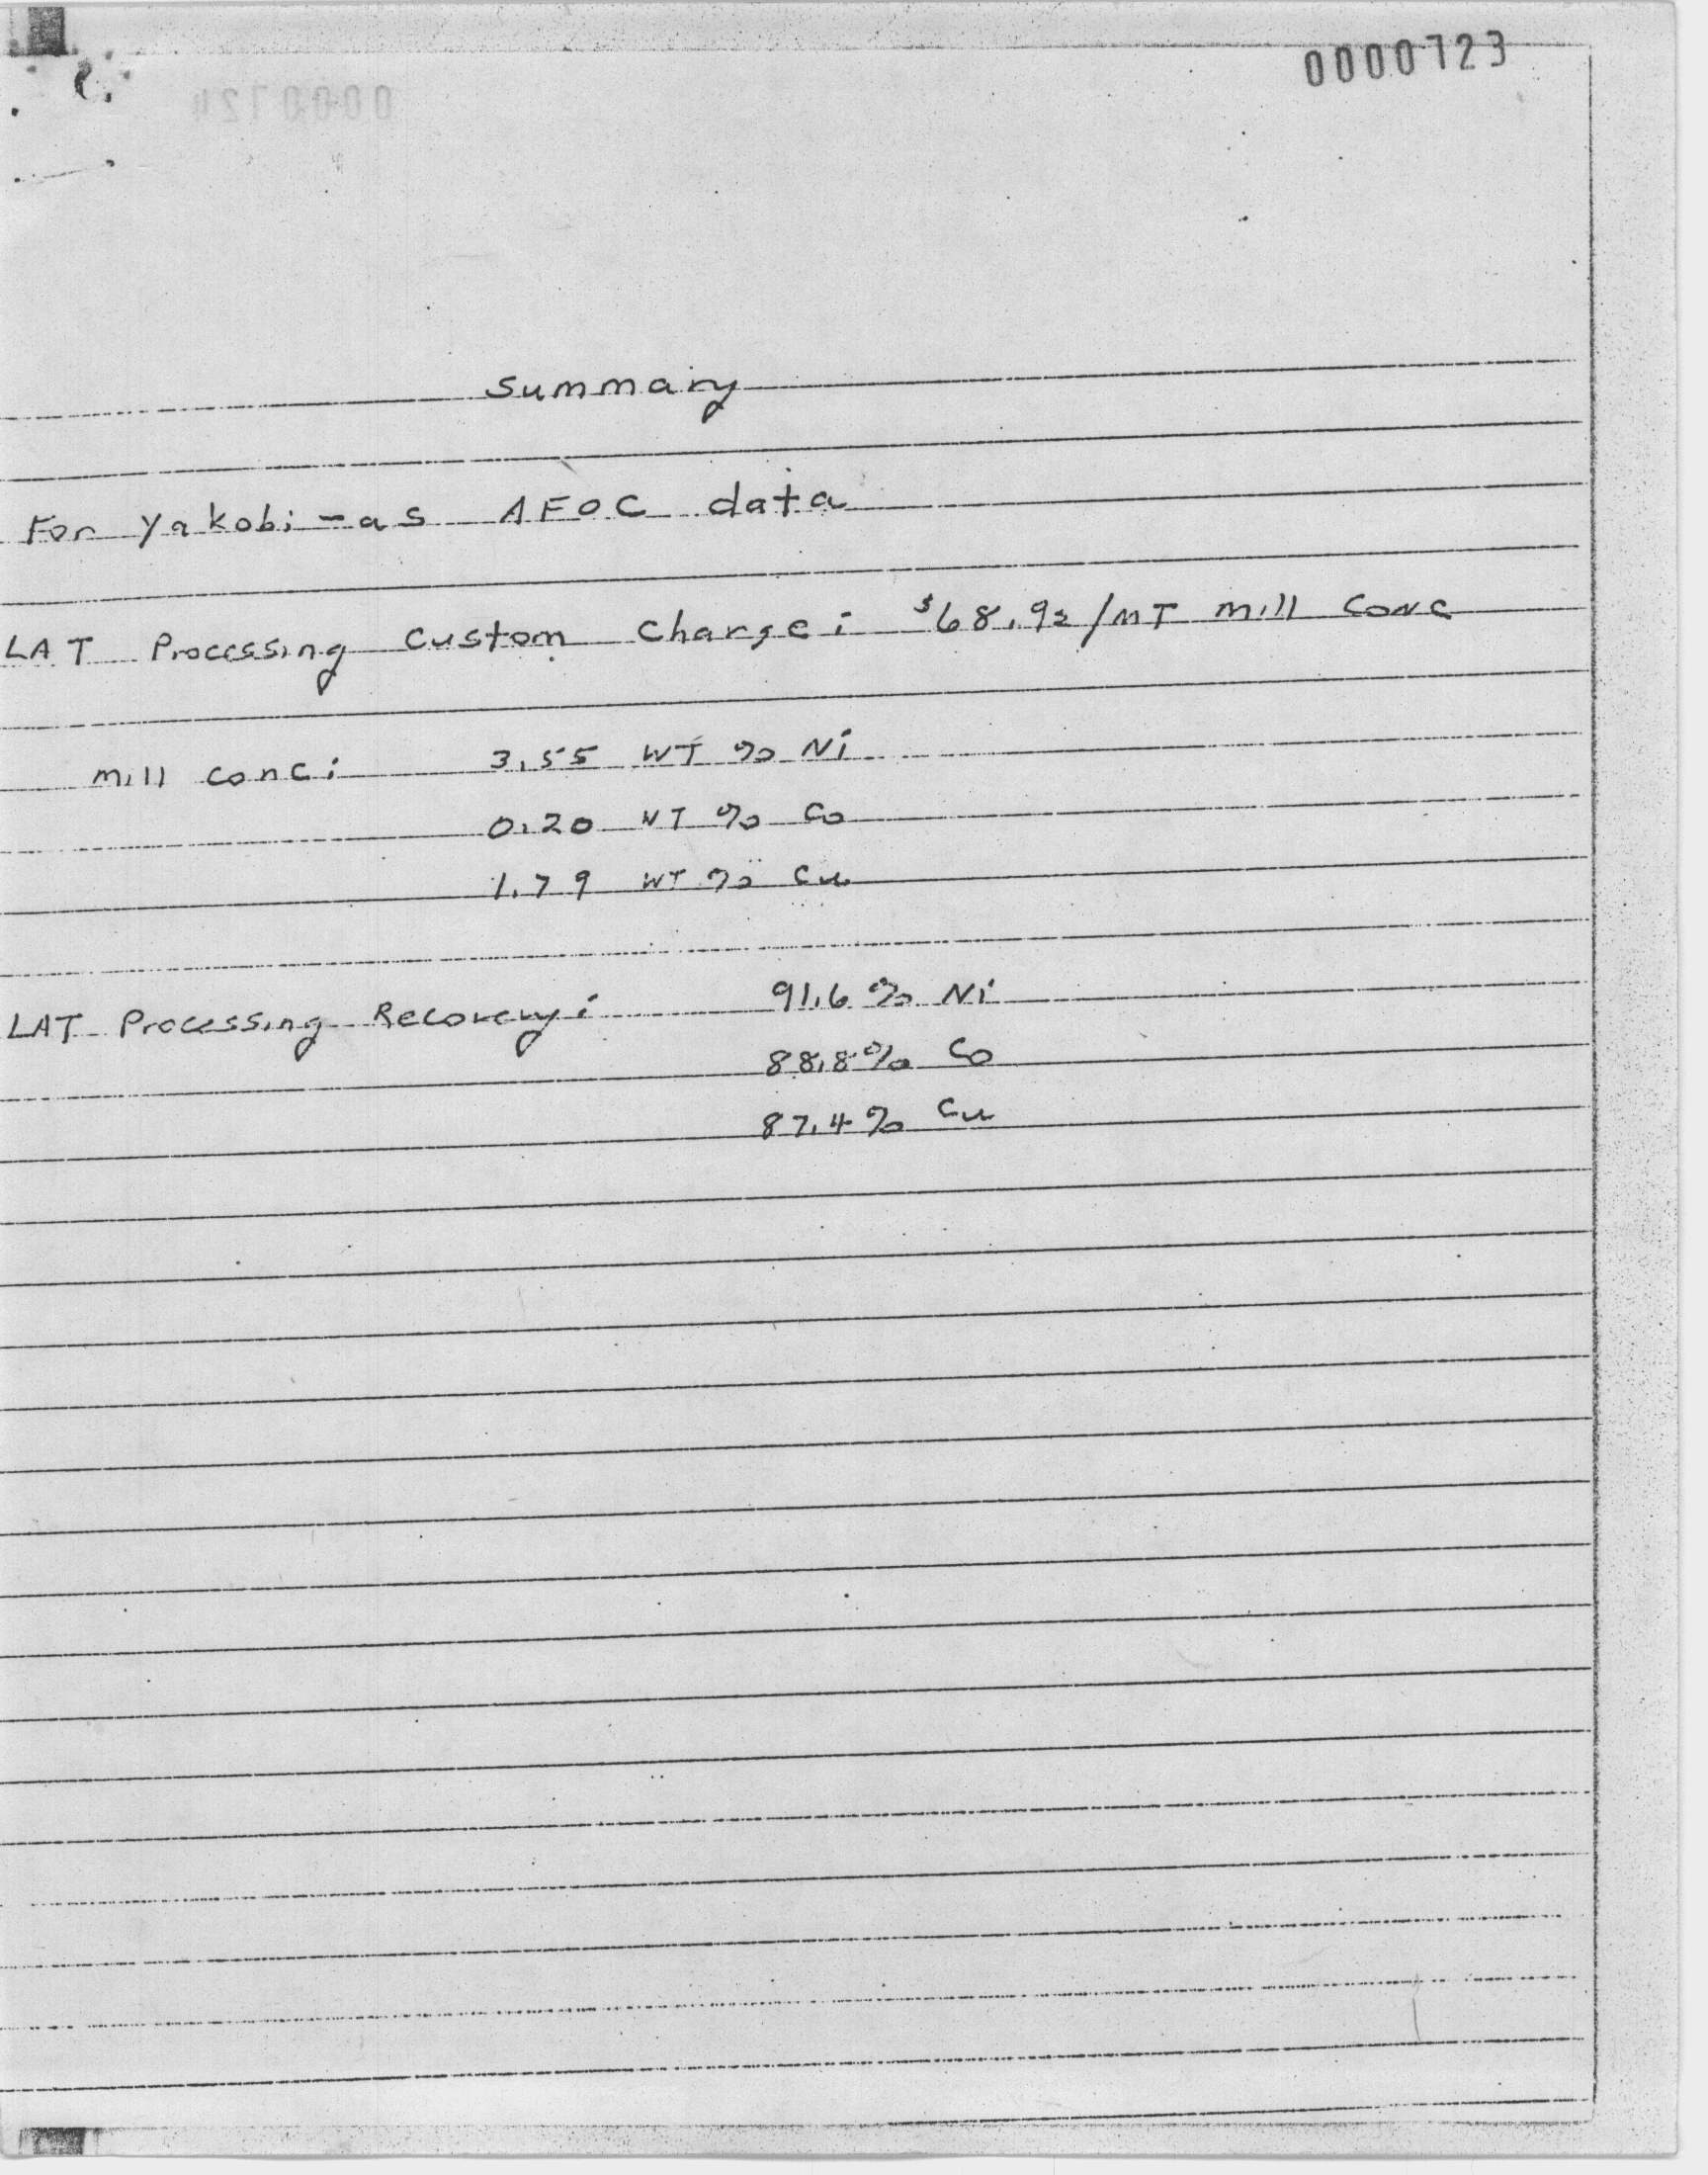 0000723
Summary
For Yakobi - as AFOC data
LAT Processing Custom Charge: $68.92/MT mill conc
mill conc: 3.55 WT % Ni
0.20 WT % Co
1.79 WT % Cu
LAT Processing Recovery: 91.6 % Ni
88.8 % Co
87.4 % Cu